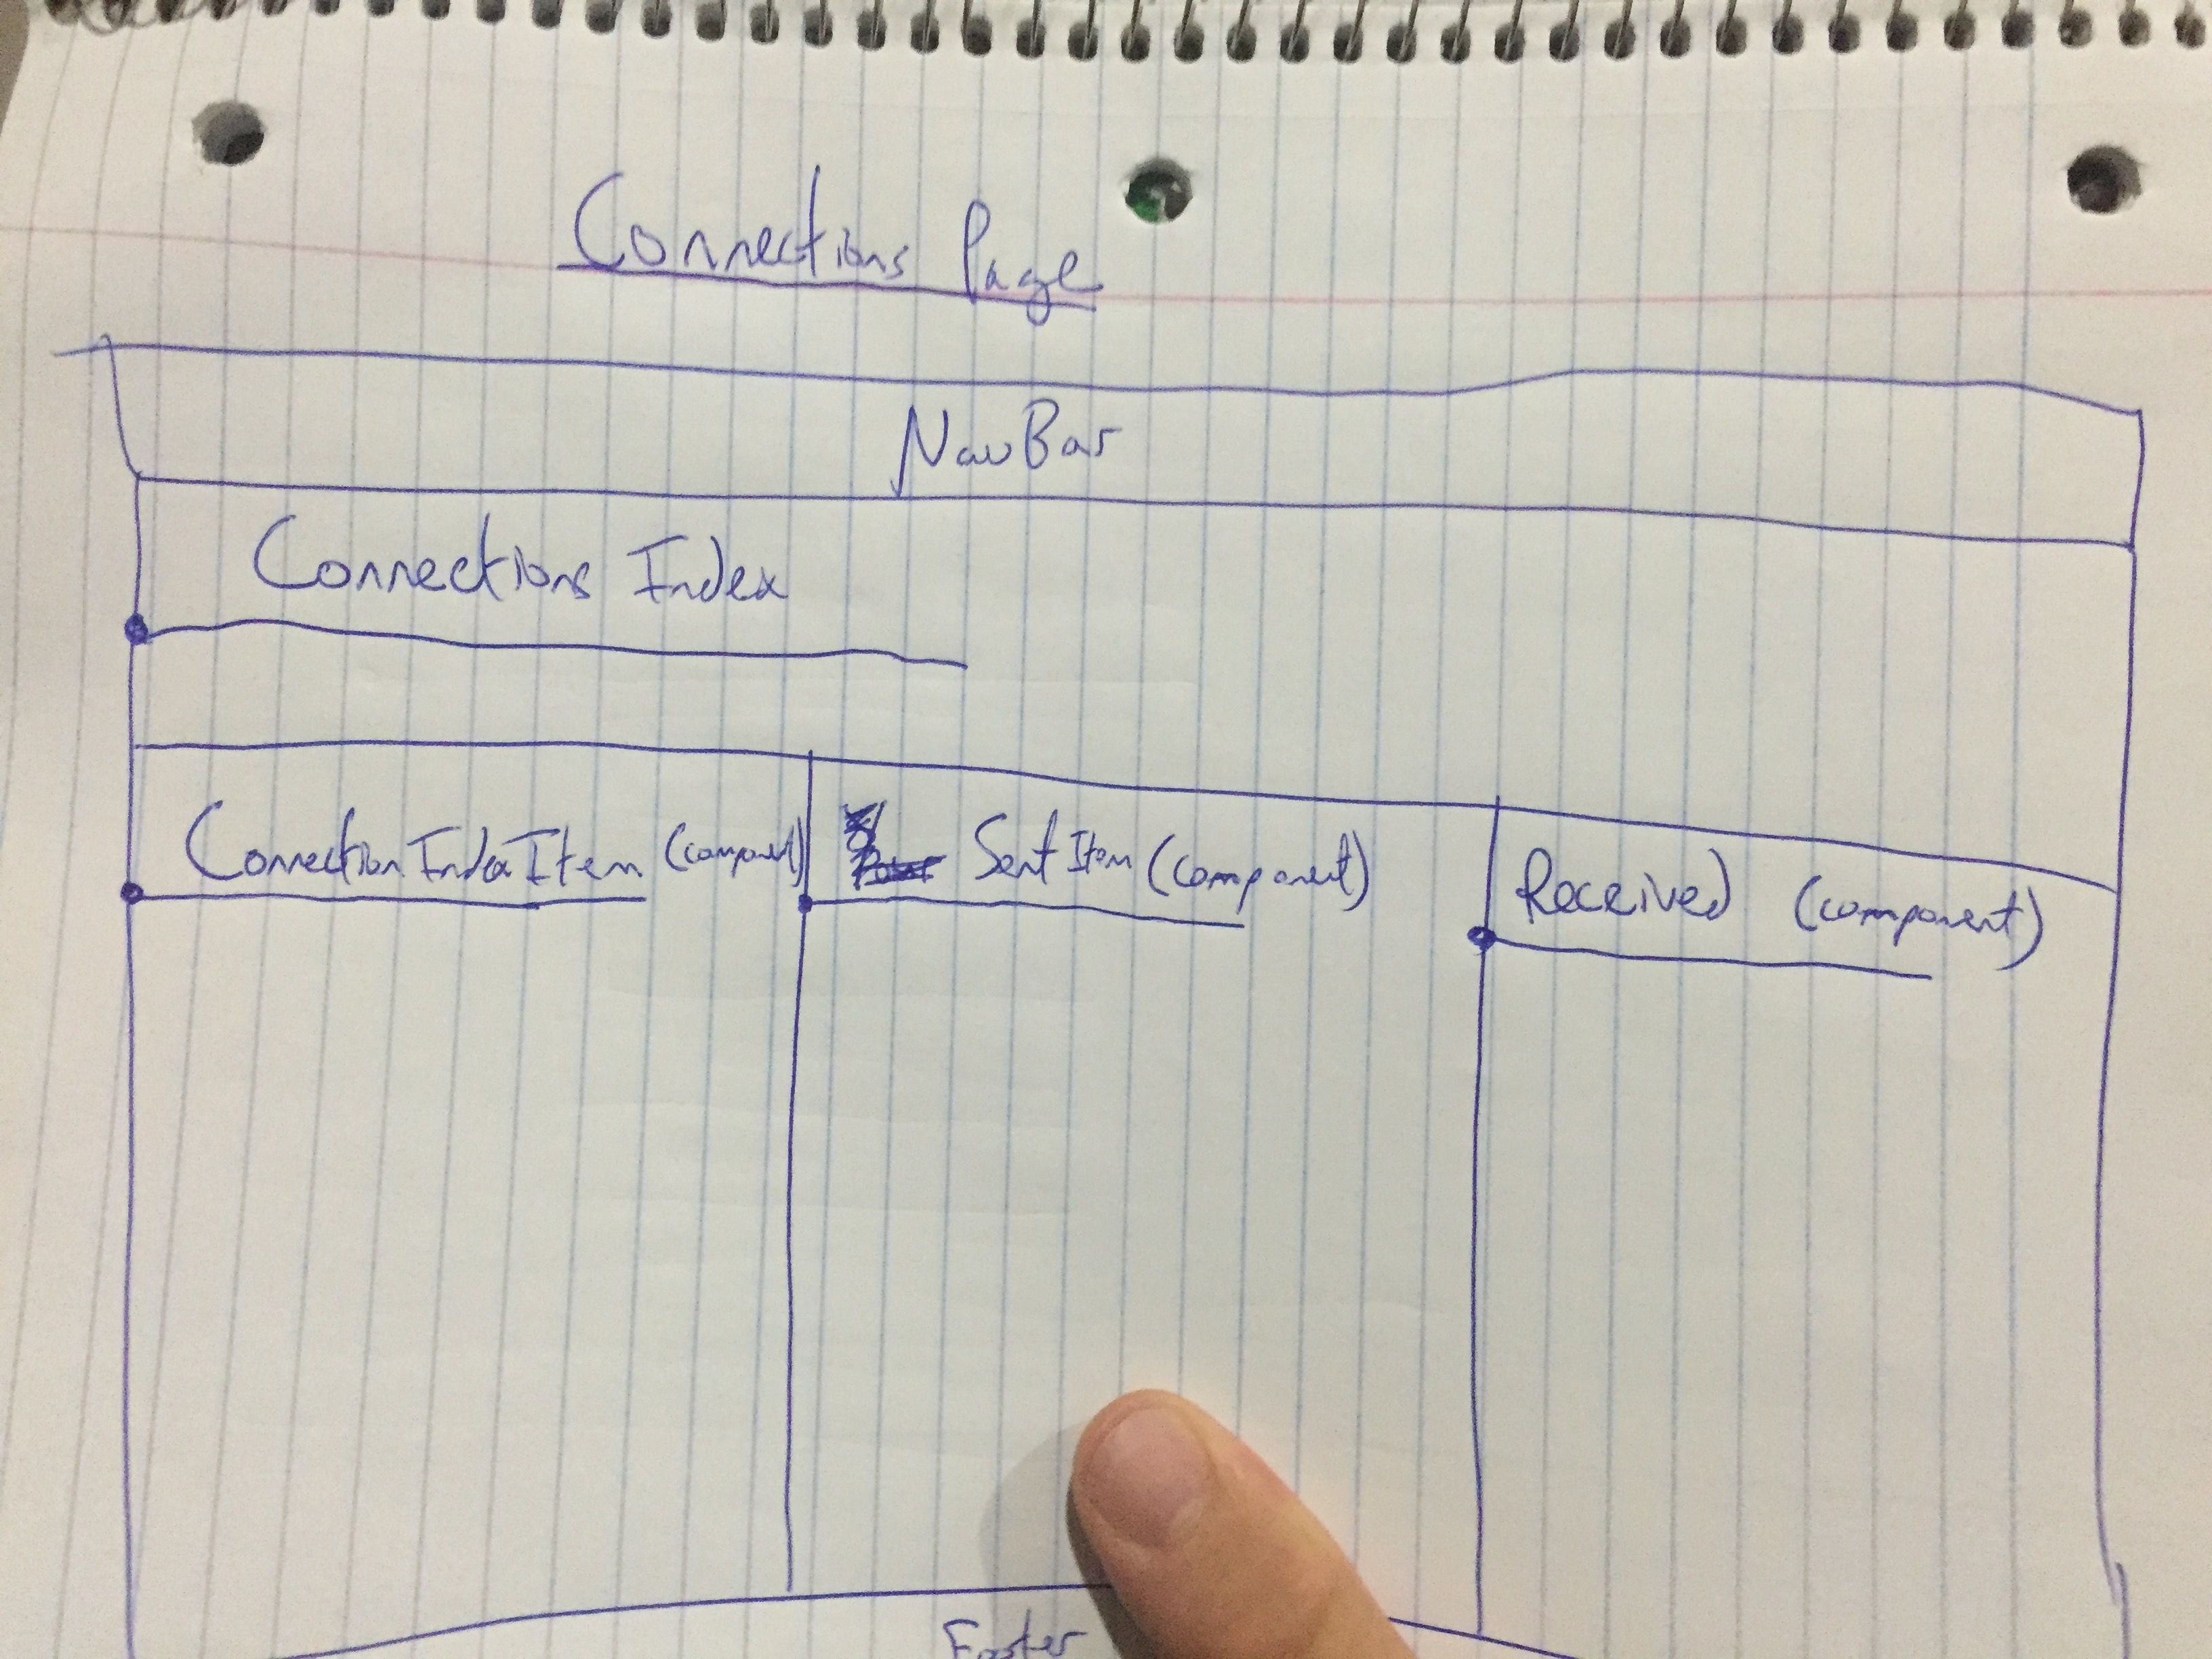 Connections Page
NavBar
Connections Index
ConnectionIndexItem (component)
SentItem (component)
Received (component)
Footer